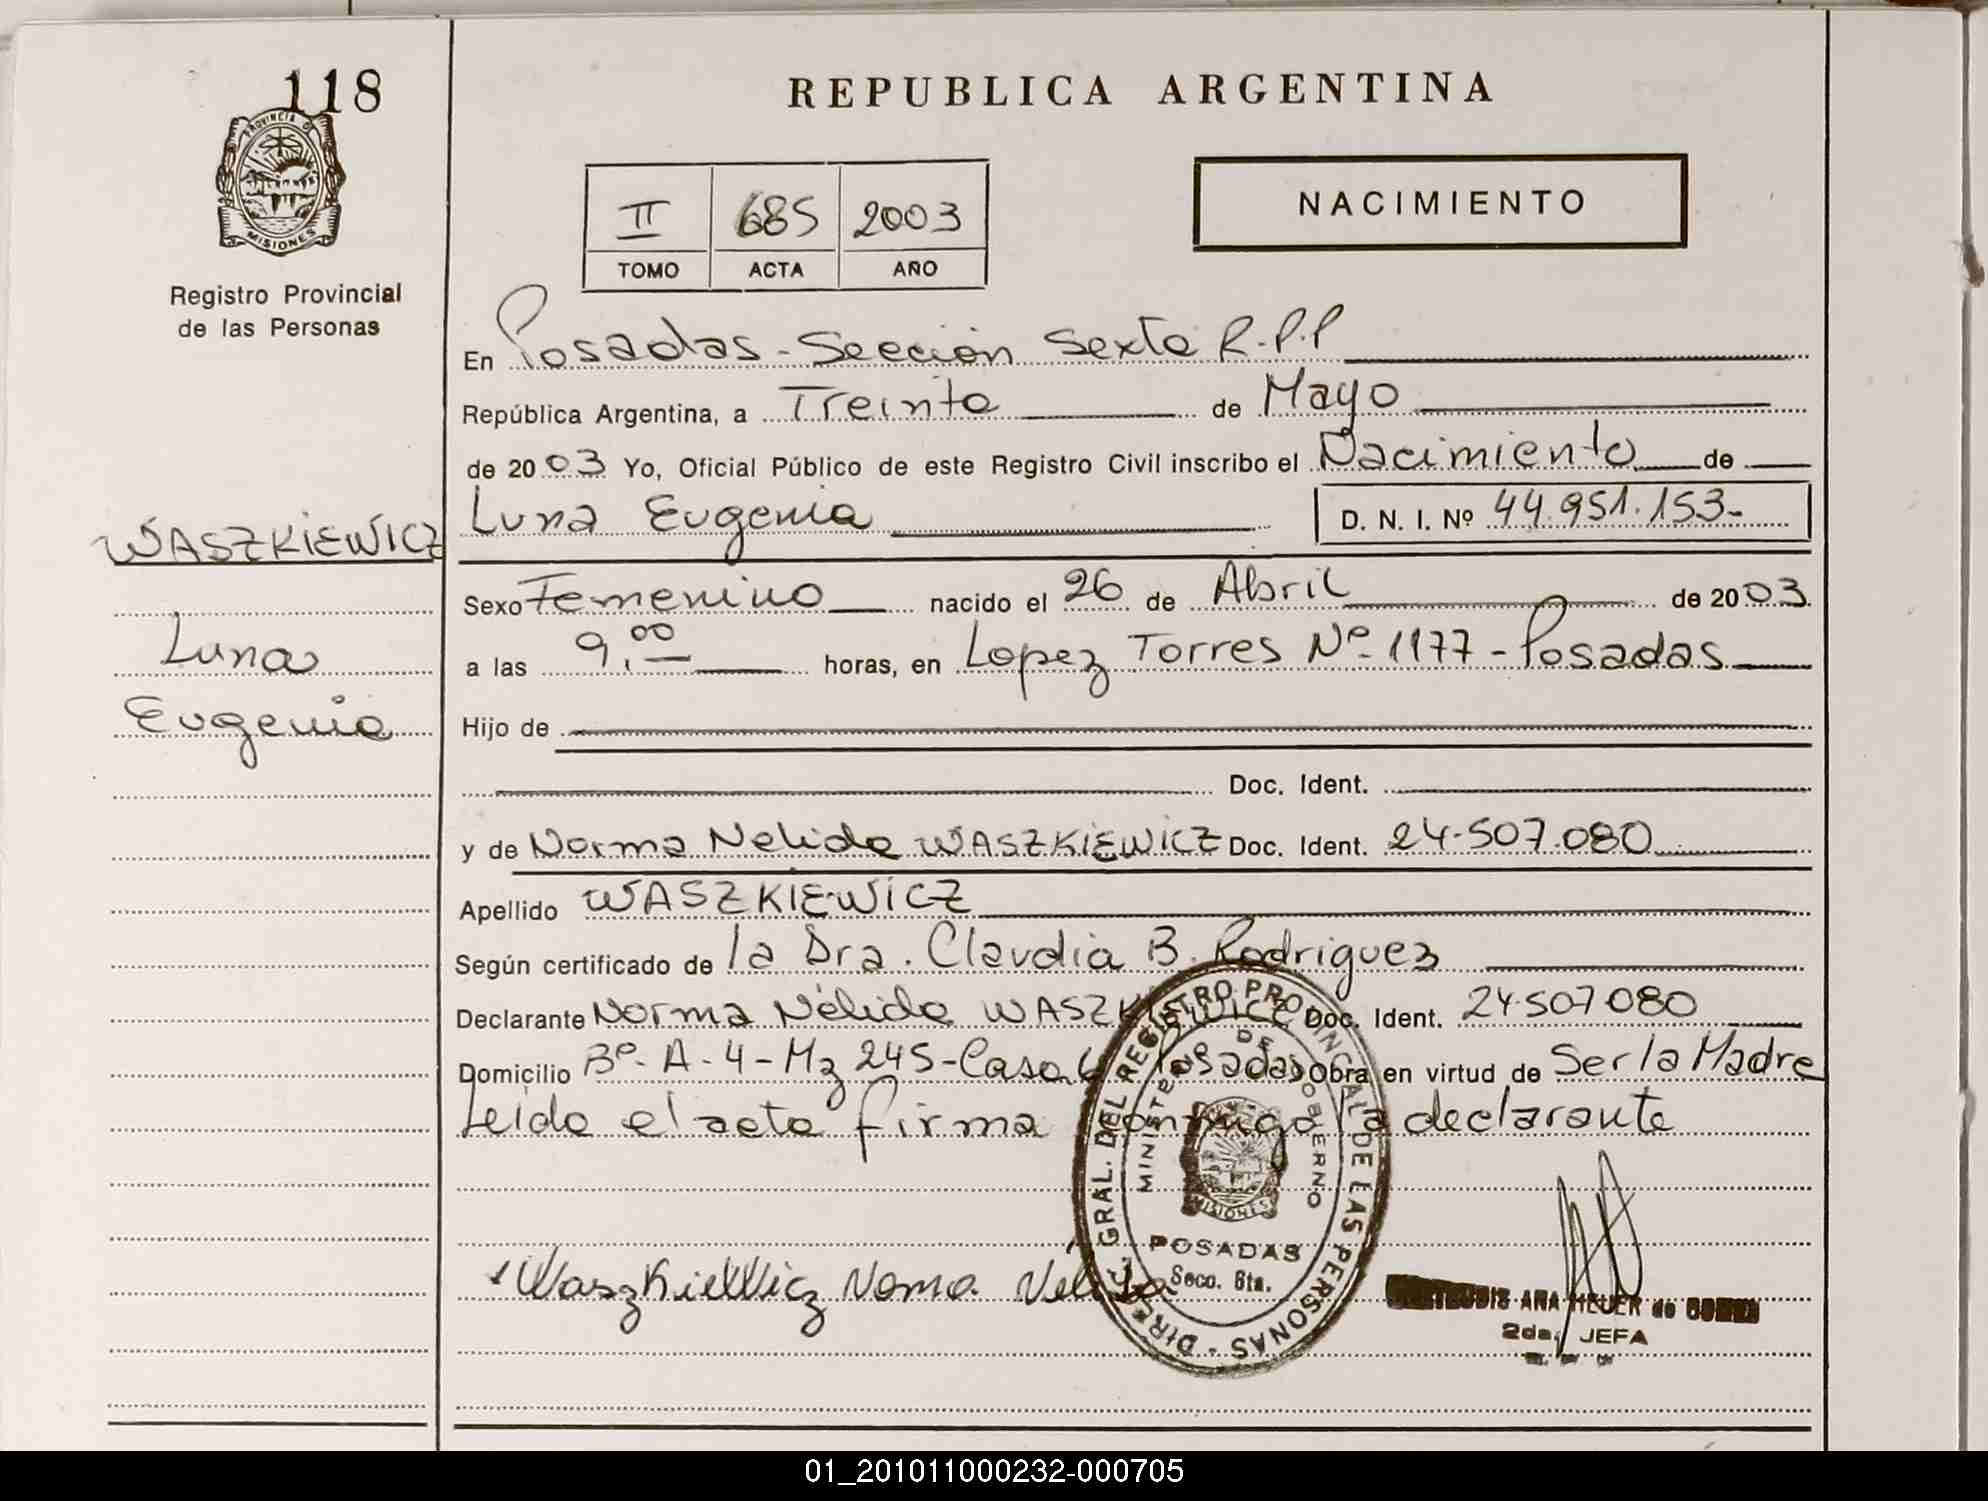 118
PROVINCIA DE
MISIONES
Registro Provincial
de las Personas
WASZKIEWICZ
Luna
Eugenia
REPUBLICA ARGENTINA
II 685 2003
TOMO ACTA AÑO
NACIMIENTO
En Posadas - Sección Sexta R.P.P
República Argentina, a Treinta de Mayo
de 2003 Yo, Oficial Público de este Registro Civil inscribo el Nacimiento de
Luna Eugenia D. N. I. Nº 44.951.153-
Sexo Femenino nacido el 26 de Abril de 2003
a las 9,00 horas, en Lopez Torres Nº 1177 - Posadas
Hijo de
Doc. Ident.
y de Norma Nelida WASZKIEWICZ Doc. Ident. 24.507.080
Apellido WASZKIEWICZ
Según certificado de la Dra. Claudia B. Rodriguez
Declarante Norma Nélida WASZKIEWICZ Doc. Ident. 24.507.080
Domicilio Bº - A - 4 - Mz 245 - Casa 6 Posadas Obra en virtud de Ser la Madre
Leída el acta firma conmigo la declarante
DIREC. GRAL. DEL REGISTRO PROVINCIAL DE LAS PERSONAS
MINISTERIO DE GOBIERNO
MISIONES
POSADAS
Secc. 6ta.
Waszkiewicz Norma Nélida
ANA MEUER de
2da. JEFA
01_201011000232-000705